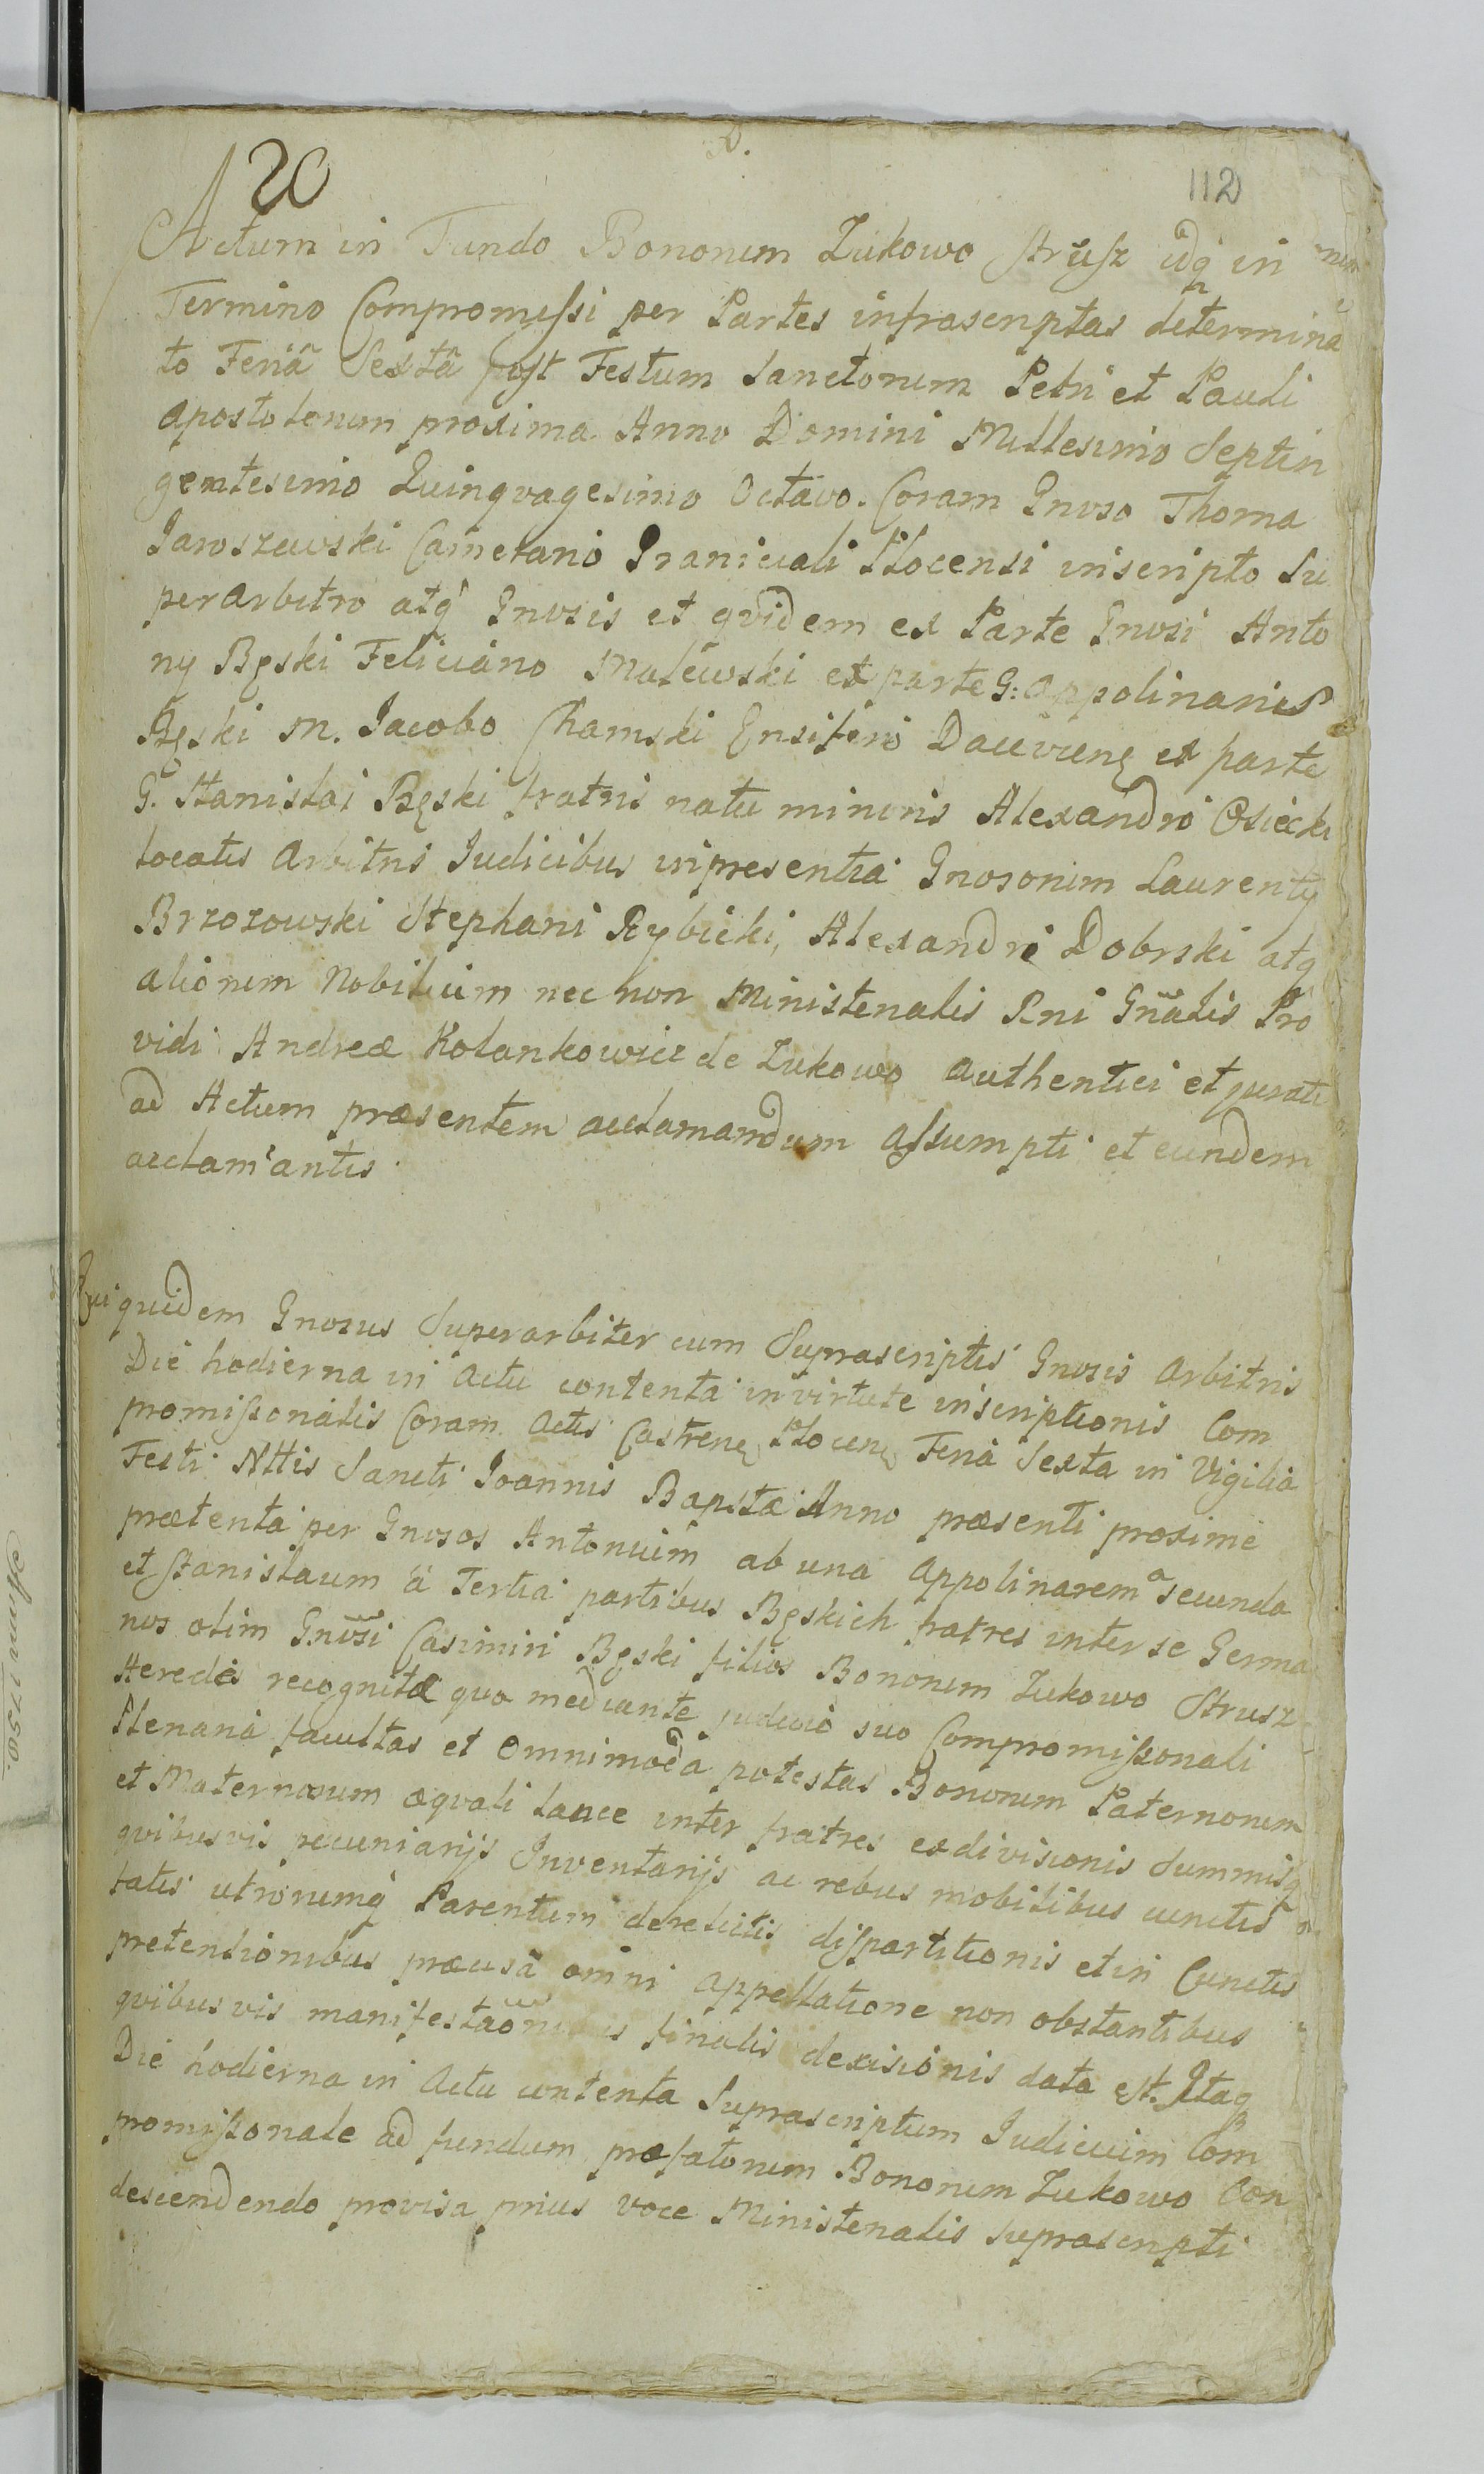 20
112
Actum in Fundo Bonorum Zukowo Strusz idq in
Termino Compromissi per Partes infrascriptas determina
to Feriâ Sextâ post Festum Sanctorum Petri et Pauli
Apostolorum proxima Anno Domini Millesimo Septin
gentesimo Quinqvagesimo Octavo. Coram Gnoso Thoma
Jaroszewski Camerario Graniciali Plocensi inscripto Su
perarbitro atq Gnosis et qvidem ex Parte Gnosi Anto
ny Bęski Feliciano Malewski ex parte G: Appolinaris
Bęski M. Jacobo Chamski Ensifero ex parte
G. Stanislai Bęski fratris natu minoris Alexandro Osiecki
locatis Arbitris Judicibus in presentia Gnosorum Laurenty
Brzozowski Stephani Rybicki, Alexandri Dobrski atq
aliorum Nobilium nec non Ministerialis Rni Gnalis Pro
vidi Andreæ Kolankowicz de Zukowo authentici et jurati
ad Actum præsentem acclamandum assumpti et eundem
acclamantis.
Qui quidem Gnosus Superarbiter cum Suprascriptis Gnosis Arbitris
Die hodierna in Actu contenta in virtute inscriptionis Com
promissionalis Coram Actis Castren Plocen Feria Sexta in Vigilia
Festi Nttis Sancti Joannis Baptæ Anno præsenti proxime
prætenta per Gnosos Antonium ab una Appolinarem a secunda
et Stanislaum â Tertia partibus Bęskich fratres inter se Germa
nos olim Gnosi Casimiri Bęski filios Bonorum Zukowo Strusz
Heredes recognitæ quo mediante judicio suo Compromissionali
Plenaria facultas et Omnimoda potestas Bonorum Paternorum
et Maternorum æqvali lance inter fratres exdivisionis Summisq
qvibusvis pecuniarijs Inventarijs ac rebus mobilibus cunctis
utrorumq Parentum derelictis dispartitionis et in Cunctis
pretensionibus præcisâ omni appellatione non obstantibus
qvibusvis manifestaonibus finalis decisionis data est. Itaq
Die hodierna in Actu contenta Suprascriptum Judicium Com
promissionale ad fundum præfatorum Bonorum Zukowo Con
descendendo provisa prius voce Ministerialis suprascripti